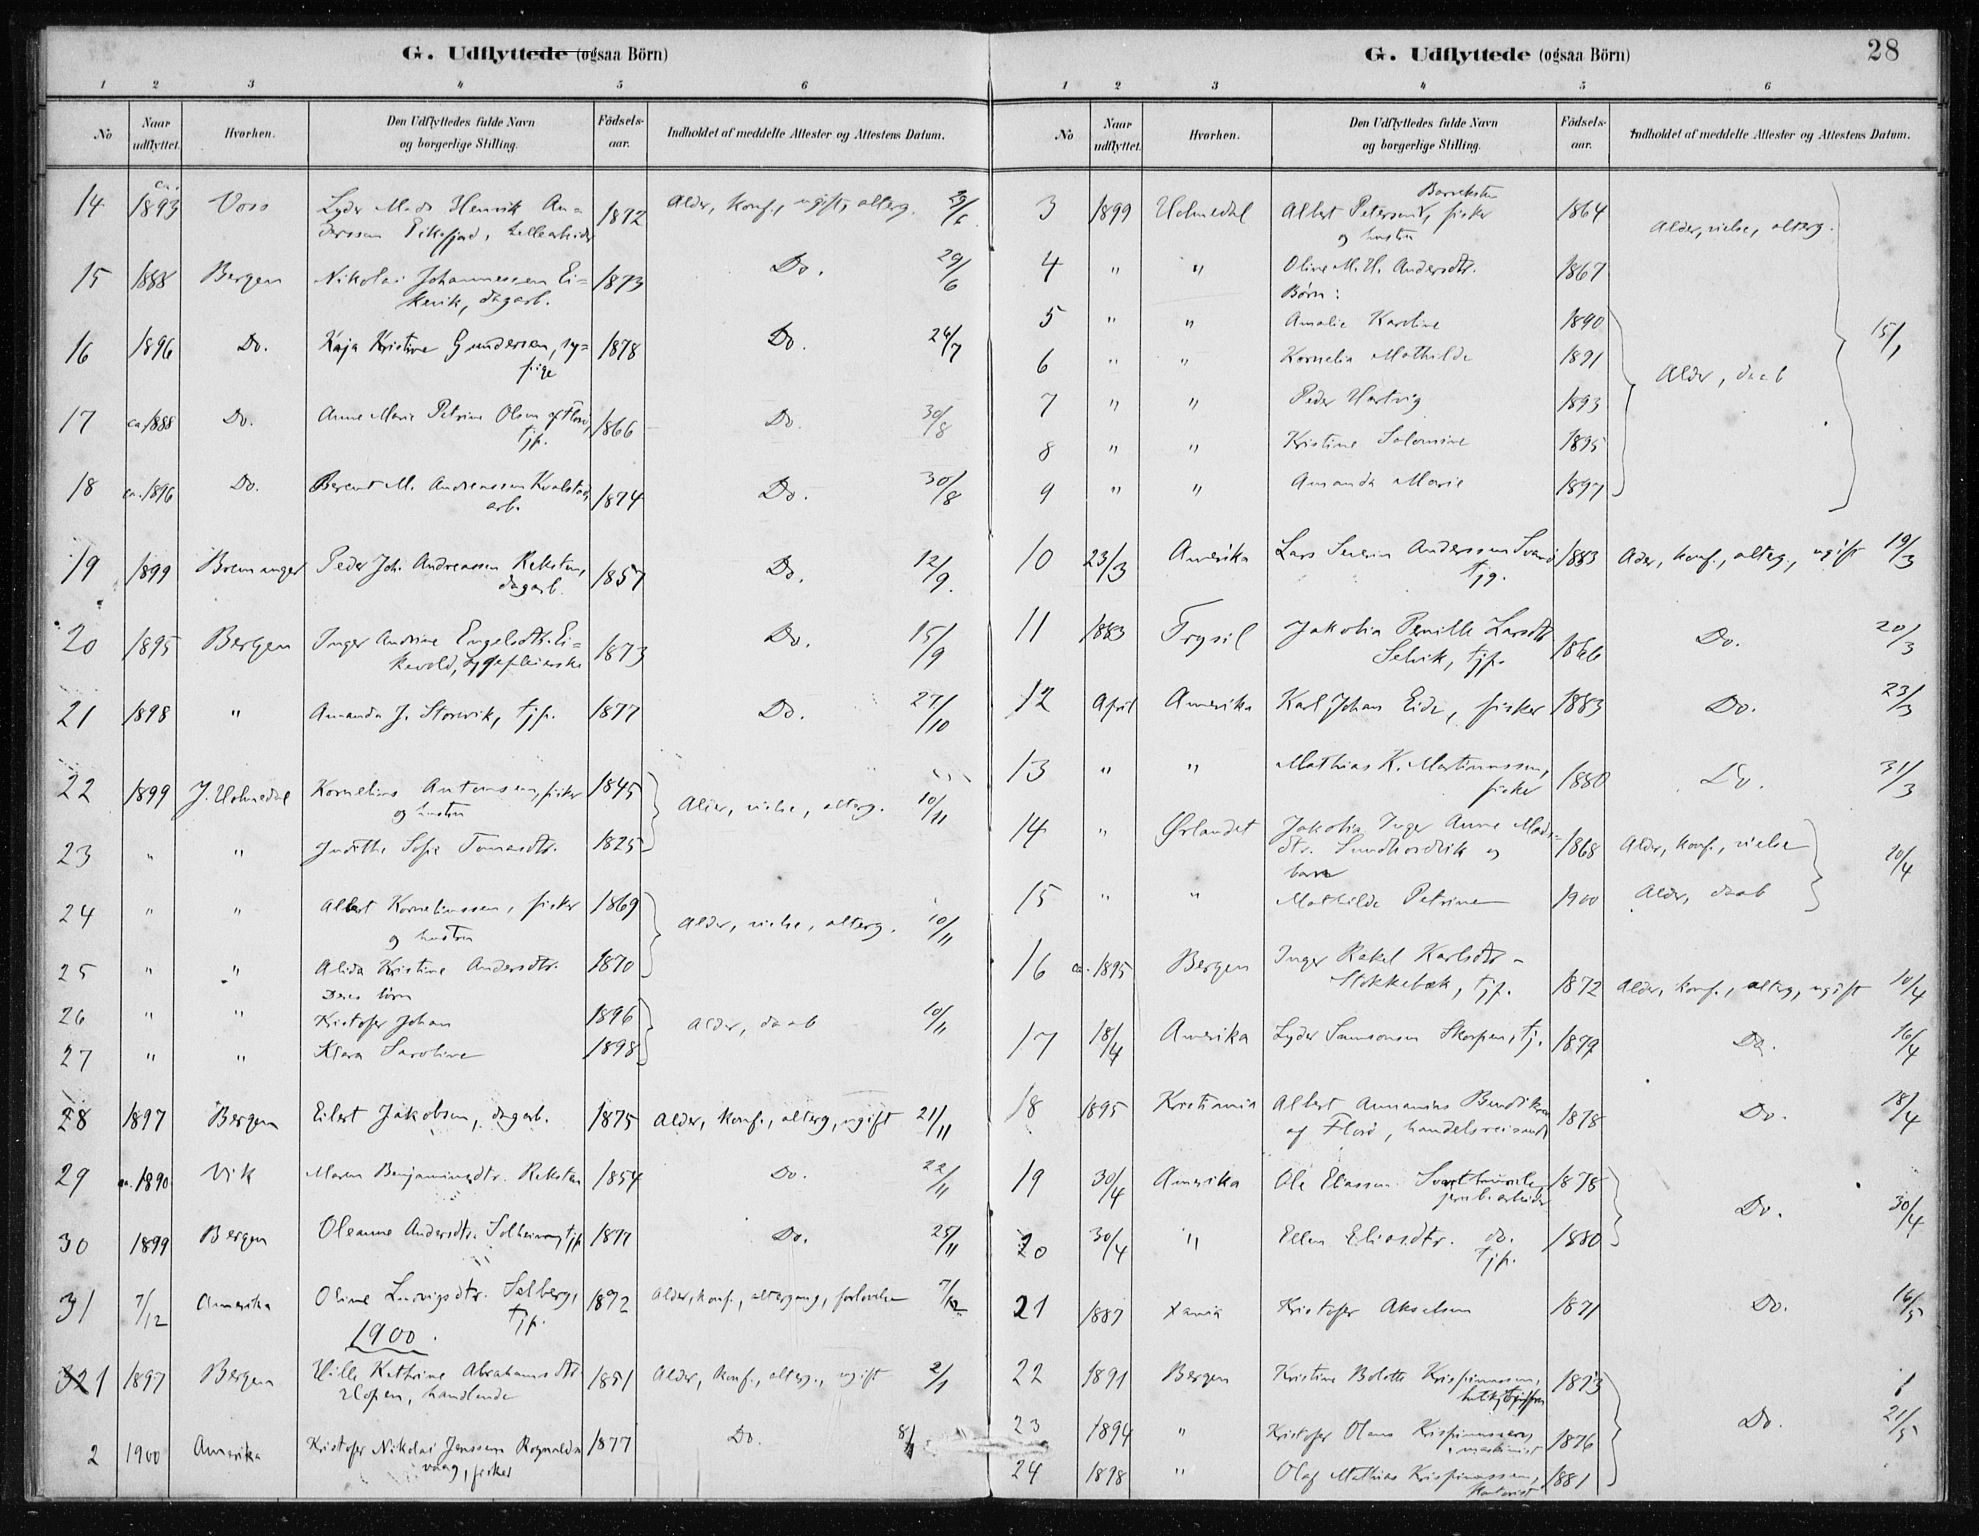 G. Udflyttede (ogsaa Börn)
1 2 3 4 5 6
No Naar udflyttet. Hvorhen. Den Udflyttedes fulde Navn og borgerlige Stilling. Födsels-aar. Indholdet af meddelte Attester og Attestens Datum.
14 ca. 1893 Voss Lyder Mads Henrik An=
Alder, konf., ugift, alterg. 29/6
derssen Eikefjord, 1872
15 1888 Bergen Nikolai Johannessen Ei= 1873 Do. 29/6
kevik, dagarb.
16 1896 Do. Kaja Kristine Gundersen, sy= 1878 Do. 26/7
pige
17 ca 1888 Do. Anne Marie Petrine Olsen af Florø, 1866 Do. 30/8
tjp.
18 ca. 1896 Do. Berent M. Andreassen Kvalstad, 1874 Do. 30/8
arb.
19 1899 Bremanger Peder Joh. Andreassen Reksten, 1857 Do. 12/9.
dagarb.
20 1895 Bergen Inger Andrine Engelsdtr. Ei= 1873 Do. 15/9
kevold, sygepleierske
21 1898 " Amanda J. Storevik, tjp. 1877 Do. 27/10
22 1899 J. Holmedal Kornelius Antonsen, fisker 1845 Alder, vielse, alterg. 10/11
og hustru
23 " " Judithe Sofie Tomasdtr. 1825
24 " " Albert Korneliussen, fisker 1869 Alder, vielse, alterg. 10/11
og hustru
25 " " Alida Kristine Andersdtr. 1870
Deres børn
26 " " Kristofer Johan 1896 Alder, daab 10/11
27 " " Klara Saroline 1898
28 1897 Bergen Eilert Jakobsen, dagarb. 1875 Alder, konf., alterg, ugift 21/11
29 ca. 1890 Vik Maren Benjaminsdtr. Reksten 1854 Do. 22/11
30 1899 Bergen Oleanne Andersdtr. Solheim, tjp. 1877 Do. 25/11
31 7/12 Amerika Oline Ludvigsdtr. Selberg, 1872 Alder, konf., altergang, forlovelse 7/12
tjp.
1900.
1 1897 Bergen Hille Kathrine Abrahamsdtr. 1851 Alder, konf., alterg., ugift 2/1
Hopen, handlende
2 1900 Amerika Kristofer Nikolai Jenssen Rognalds 1877 Do. 8/1
vaag, fisker
G. Udflyttede (ogsaa Börn) 28
1 2 3 4 5 6
No Naar udflyttet. Hvorhen. Den Udflyttedes fulde Navn og borgerlige Stilling. Födsels-aar. Indholdet af meddelte Attester og Attestens Datum.
Barreksten
3 1899 Holmedal Albert Petersen, fisker 1864 Alder, vielse, alterg.
og hustru
4 " " Oline M. H. Andersdtr. 1867
Børn:
5 " " Amalie Karoline 1890 15/1
6 " " Kornelia Mathilde 1891 Alder, daab
7 " " Peder Hartvig 1893
8 " " Kristine Solomine 1895
9 " " Amanda Marie 1897
10 23/3 Amerika Lars Severin Anderssen Svanø 1883 Alder, konf., alterg., ugift 19/3
tjg.
11 1883 Trysil Jakobia Pernille Larsdtr. 1866 Do. 20/3
Selvik, tjp.
12 April Amerika Karl Johan Eide, fisker 1883 Do. 23/3
13 " " Mathias K. Martinussen, 1880 Do. 31/3
fisker
14 " Ørlandet Jakobia Inger Anne Mads- 1868 Alder, konf., vielse 10/4
dtr. Sundhordvik og
barn
15 " " Mathilde Petrine 1900 Alder, daab
16 ca. 1895 Bergen Inger Rakel Karlsdtr. -
Stokkebæk, tjp. 1872 Alder, konf., alterg, ugift 10/4
17 18/4 Amerika Lyder Samsonsen Skorpen, tj. 1879 Do. 16/4
18 1895 Kristiania Albert Annanias Bendiksen 1878 Do. 18/4
af Florø, handelsreisende
19 30/4 Amerika Ole Eliassen 1878 Do. 30/4
jernb. arbeider
20 30/4 " Ellen Eliasdtr. do. 1880
tjp.
21 1887 Xania Kristofer Akselsen 1871 Do. 16/5
22 1891 Bergen Kristine Bolette Krispinussen, 1873
23 1894 " Kristofer Olaus Krispinussen, 1876 Do. 21/5
maskinist
24 1898 " Olaf Mathias Krispinussen, 1881
kontorist